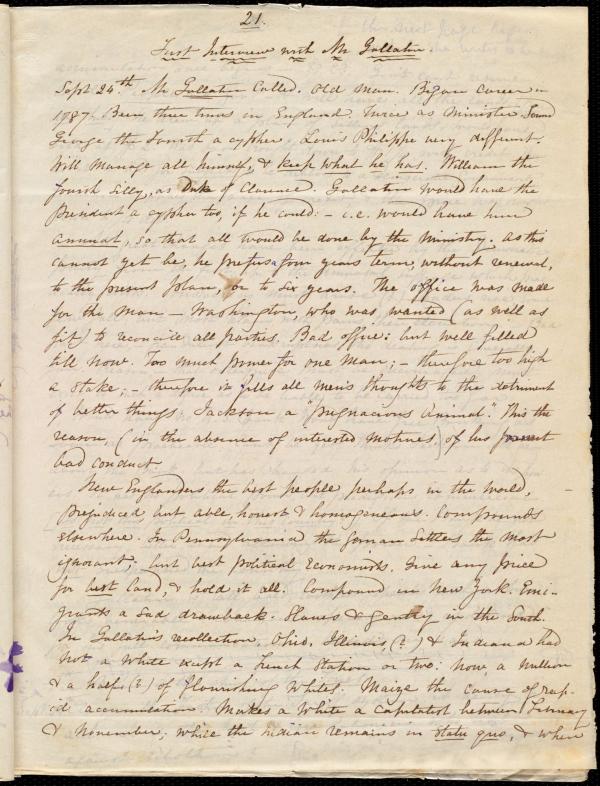 21.
First Interview with Mr Gallatin.
Sept 24th. Mr Gallatin called. Old man. Began career in
1787. Been three times in England. Twice as Minister. Found
George the Fourth a cypher. Louis Philippe very different.
Will manage all himself, & keep what he has. William the
Fourth silly, as Duke of Clarence. Gallatin would have the
President a cypher too, if he could: – i.e. would have him
annual, so that all would be done by the Ministry. As this
cannot yet be, he prefers a four years term, without renewal,
to the present plan, or to six years. The office was made
for the man – Washington, who was wanted (as well as
fit) to reconcile all parties. Bad office: but well filled
till now. Too much power for one man; – therefore too high
a stake; – therefore it fills all men's thoughts to the detriment
of better things. Jackson a "pugnacious animal." This the
reason, (in the absence of interested motives) of his present
bad conduct.
New Englanders the best people, perhaps in the world,
prejudiced, but able, honest & homogeneous. Compounds
elsewhere. In Pennsylvania the German Settlers the most
ignorant, but best Political Economists. Give any price
for best land, & hold it all. Compound in New York. Emi-
grants a sad drawback. Slaves & gentry in the South.
In Gallatin's recollection, Ohio, Illinois (?) & Indiana had
not a White except a French Station or two: now, a million
& a half (?) of flourishing Whites. Maize the cause of rap-
id accumulation. Makes a White a capitalist between February
& November; while the Indian remains in statu quo, & when